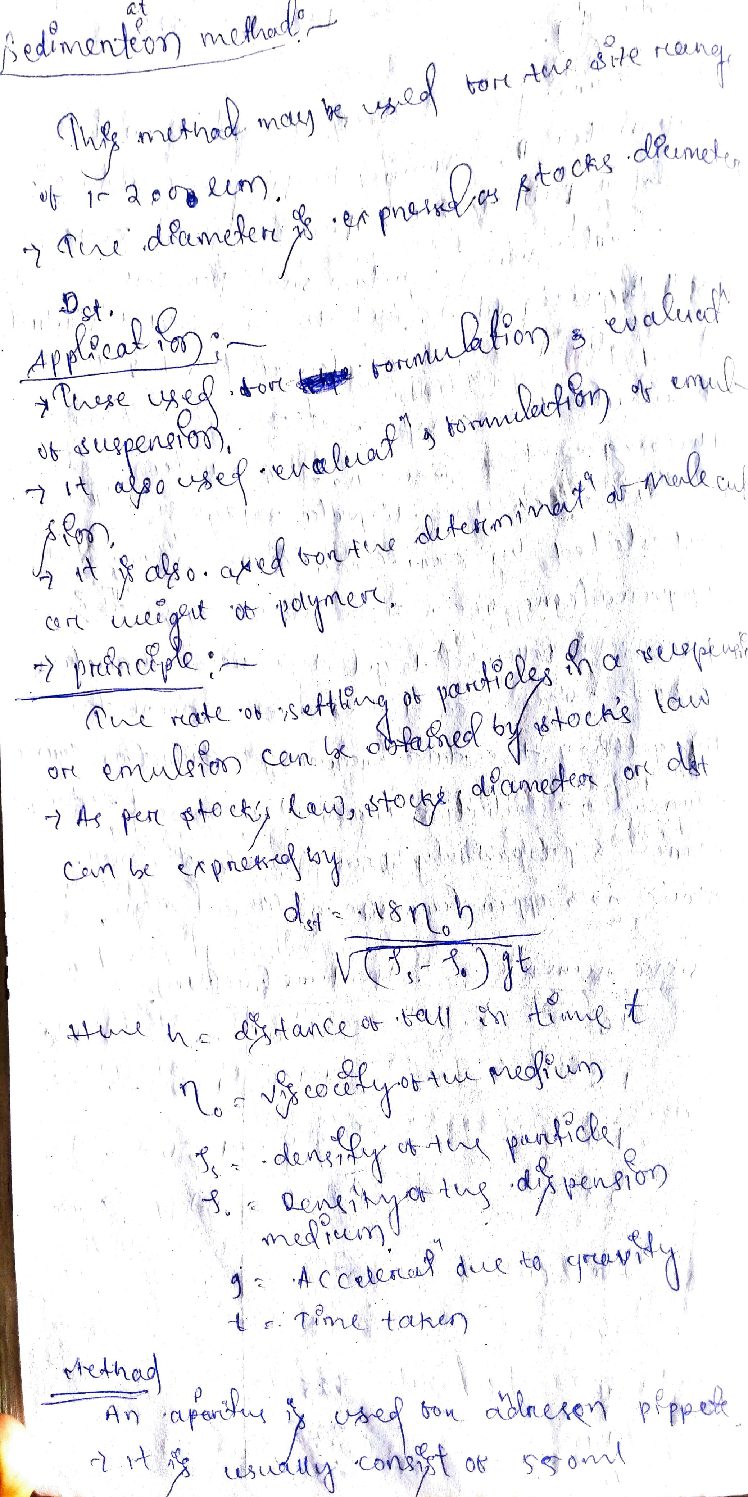 Sedimentation method :-
This method may be used for the size rang
of 1- 200 um.
→ The diameter is expressed as stocks diameter
Dst.
Application :-
→ These used for formulation & evaluatn
of suspension.
→ it also used evaluatn & formulation of emul
sion.
→ it is also used for the determinatn of molecul
ar weight of polymer.
→ principle :-
The rate of settling of particles in a suspension
or emulsion can be obtained by stock's law
→ As per stock's law, stocks diameter or dst
can be expressed by
dst = 18η₀h / √(ρs - ρ₀) gt
Here h = distance of fall in time t
η₀ = viscocity of the medium
ρs = density of the particle
ρ₀ = Density of the dispension
medium
g = Acceleratn due to gravity
t = Time taken
Method
An aparitus is used for adresen pippete
→ it is usually consist of 550ml